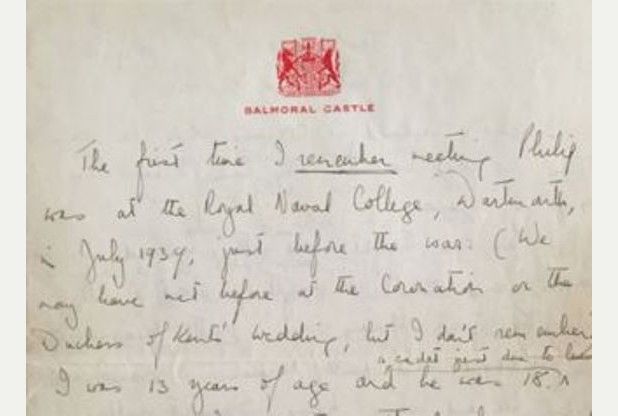 BALMORAL CASTLE
The first time I remember meeting Philip
was at the Royal Naval College, Dartmouth,
in July 1939, just before the war. (We
may have met before at the Coronation or the
Duchess of Kent's wedding, but I don't remember)
a cadet just due to
I was 13 years of age and he was 18